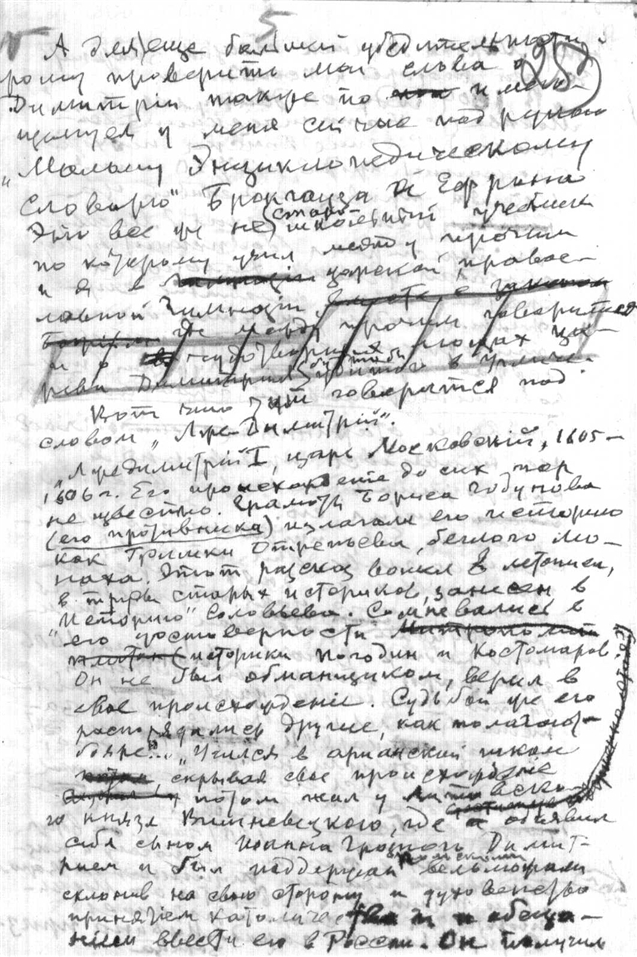 5
258
А для еще большей убедительности
прошу проверить мои слова о
Димитрии также по и мею-
щемуся у меня сейчас под рукою
„Малому Энциклопедическому
Словарю" Брокгауза и Ефрона
Это все уже не старый школьный учебник
по которому учил между прочим
и я в царской, правос-
лавной Гимназии,
где между прочим говорится
и о чудотворных мощах ца-
ревича Димитрия убитого в Угличе.
Вот что там говорится под
словом „Лже-Димитрий".
„Лжедимитрий I, царь Московский, 1605-
1606 г. Его происхождение до сих пор
не известно. Грамоты Бориса Годунова
(его противника) излагали его историю
как Гришки Отрепьева, беглого мо-
наха. Этот рассказ вошел в летописи,
в труды старых историков, занесен в
„Историю" Соловьева. Сомневались в
его достоверности
историки Погодин и Костомаров.
Он не был обманщиком, верил в
свое происхождение. Судьбой же его
распорядились другие, как полагают
бояре. „Учился в арианской школе
скрывая свое происхождение
потом жил у литовско-
го князя Вишневецкого, где и объявил
себя сыном Иоанна Грозного Димит-
рием и был поддержан польскими вельможами
склонив на свою сторону и духовенство
принятием католичества и обеща-
нием ввести его в России. Он получил